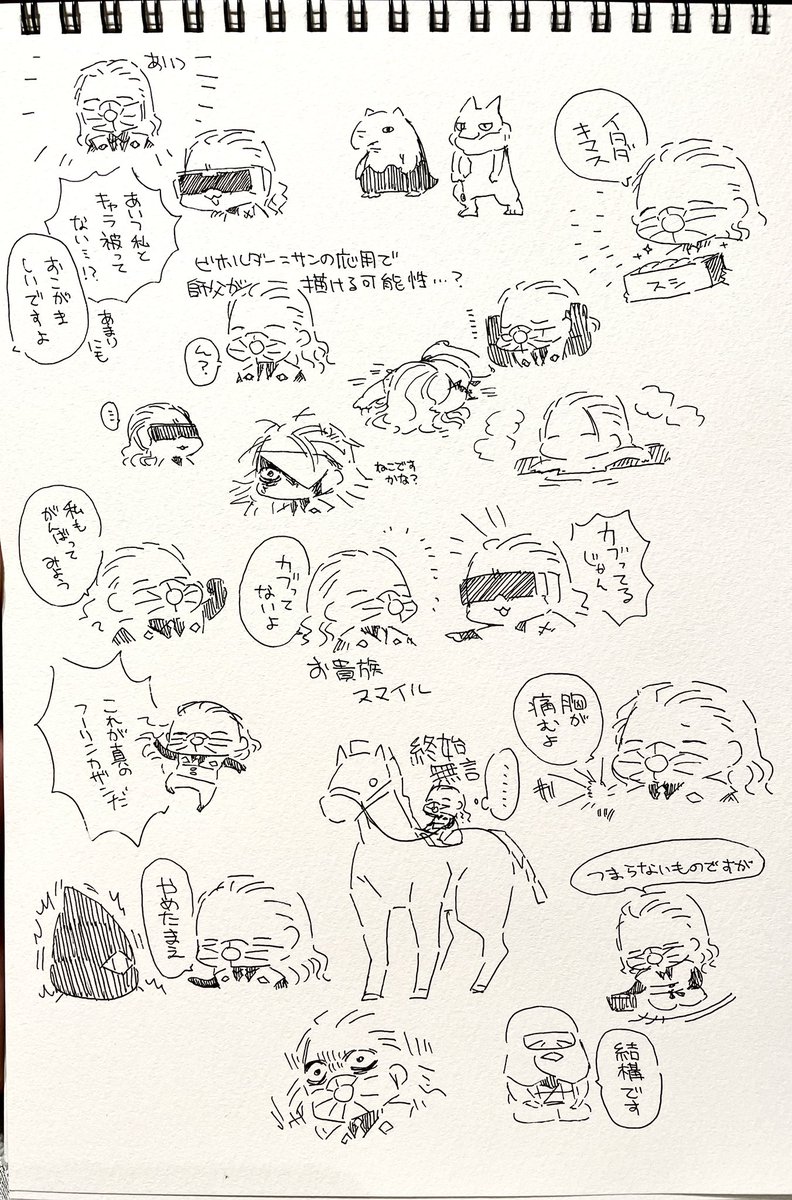 あいつ
あいつ私と
キャラ被って
ない…!?
おこがま
しいですよ
あまりにも
イタダ
キマス
スシ
ビホルダー=サンの応用で
師父がく
描ける可能性…?
ん?
…
ねこです
かな?
私も
がんばって
みよう
カブって
ないよ
お貴族
スマイル
カブってる
じゃん
これが真の
フーリンカザンだ
終始
無言
胸が
痛むよ
やめたまえ
つまらないものですが
結構です